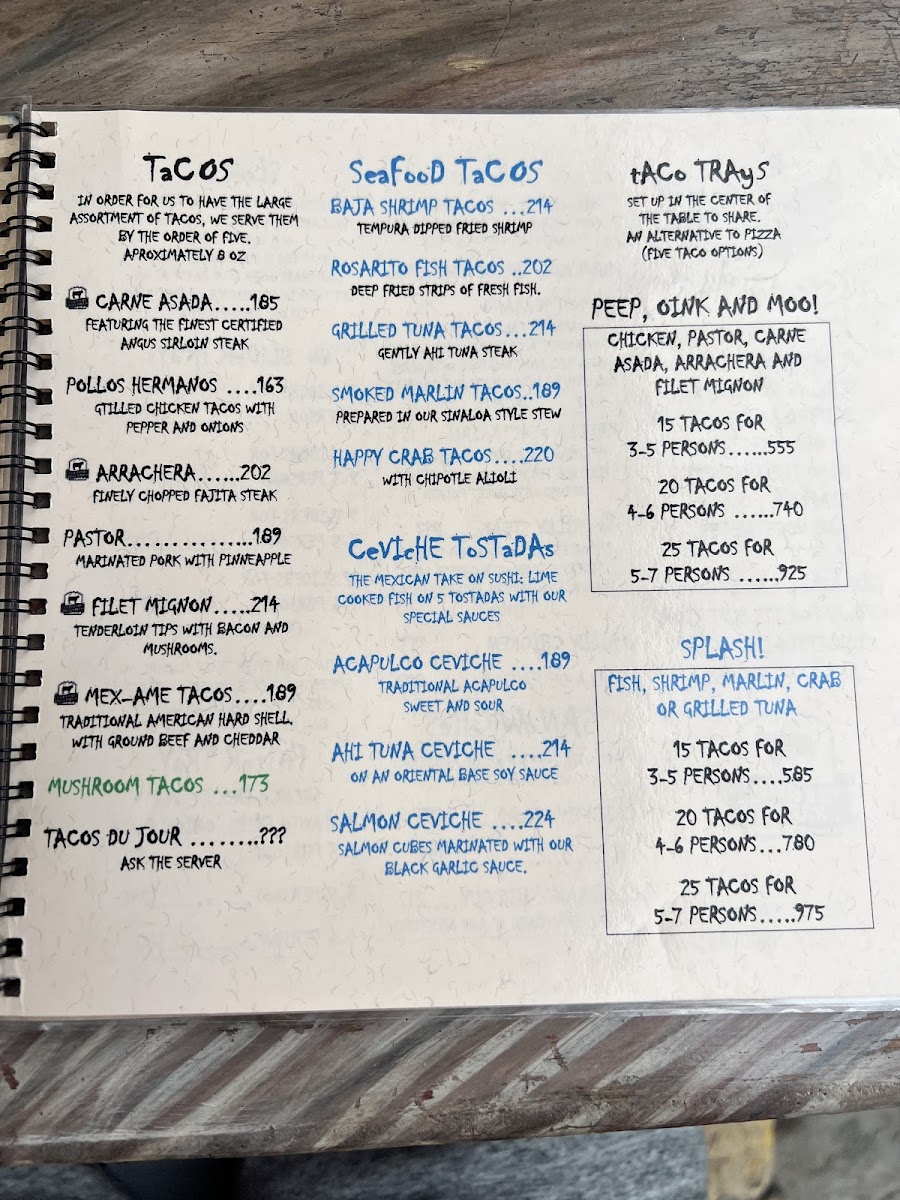 TaCOS
IN ORDER FOR US TO HAVE THE LARGE
ASSORTMENT OF TACOS, WE SERVE THEM
BY THE ORDER OF FIVE.
APROXIMATELY 8 OZ
CARNE ASADA.....185
FEATURING THE FINEST CERTIFIED
ANGUS SIRLOIN STEAK
POLLOS HERMANOS ....163
GTILLED CHICKEN TACOS WITH
PEPPER AND ONIONS
ARRACHERA......202
FINELY CHOPPED FAJITA STEAK
PASTOR...............189
MARINATED PORK WITH PINNEAPPLE
FILET MIGNON.....214
TENDERLOIN TIPS WITH BACON AND
MUSHROOMS.
MEX-AME TACOS....189
TRADITIONAL AMERICAN HARD SHELL,
WITH GROUND BEEF AND CHEDDAR
MUSHROOM TACOS ...173
TACOS DU JOUR ........???
ASK THE SERVER
SeaFooD TaCOS
BAJA SHRIMP TACOS ...214
TEMPURA DIPPED FRIED SHRIMP
ROSARITO FISH TACOS ..202
DEEP FRIED STRIPS OF FRESH FISH.
GRILLED TUNA TACOS...214
GENTLY AHI TUNA STEAK
SMOKED MARLIN TACOS..189
PREPARED IN OUR SINALOA STYLE STEW
HAPPY CRAB TACOS....220
WITH CHIPOTLE ALIOLI
CeVIcHE ToSTaDAs
THE MEXICAN TAKE ON SUSHI: LIME
COOKED FISH ON 5 TOSTADAS WITH OUR
SPECIAL SAUCES
ACAPULCO CEVICHE ....189
TRADITIONAL ACAPULCO
SWEET AND SOUR
AHI TUNA CEVICHE .....214
ON AN ORIENTAL BASE SOY SAUCE
SALMON CEVICHE ....224
SALMON CUBES MARINATED WITH OUR
BLACK GARLIC SAUCE.
tACo TRAyS
SET UP IN THE CENTER OF
THE TABLE TO SHARE.
AN ALTERNATIVE TO PIZZA
(FIVE TACO OPTIONS)
PEEP, OINK AND MOO!
CHICKEN, PASTOR, CARNE
ASADA, ARRACHERA AND
FILET MIGNON
15 TACOS FOR
3-5 PERSONS......555
20 TACOS FOR
4-6 PERSONS ......740
25 TACOS FOR
5-7 PERSONS ......925
SPLASH!
FISH, SHRIMP, MARLIN, CRAB
OR GRILLED TUNA
15 TACOS FOR
3-5 PERSONS....585
20 TACOS FOR
4-6 PERSONS...780
25 TACOS FOR
5-7 PERSONS.....975